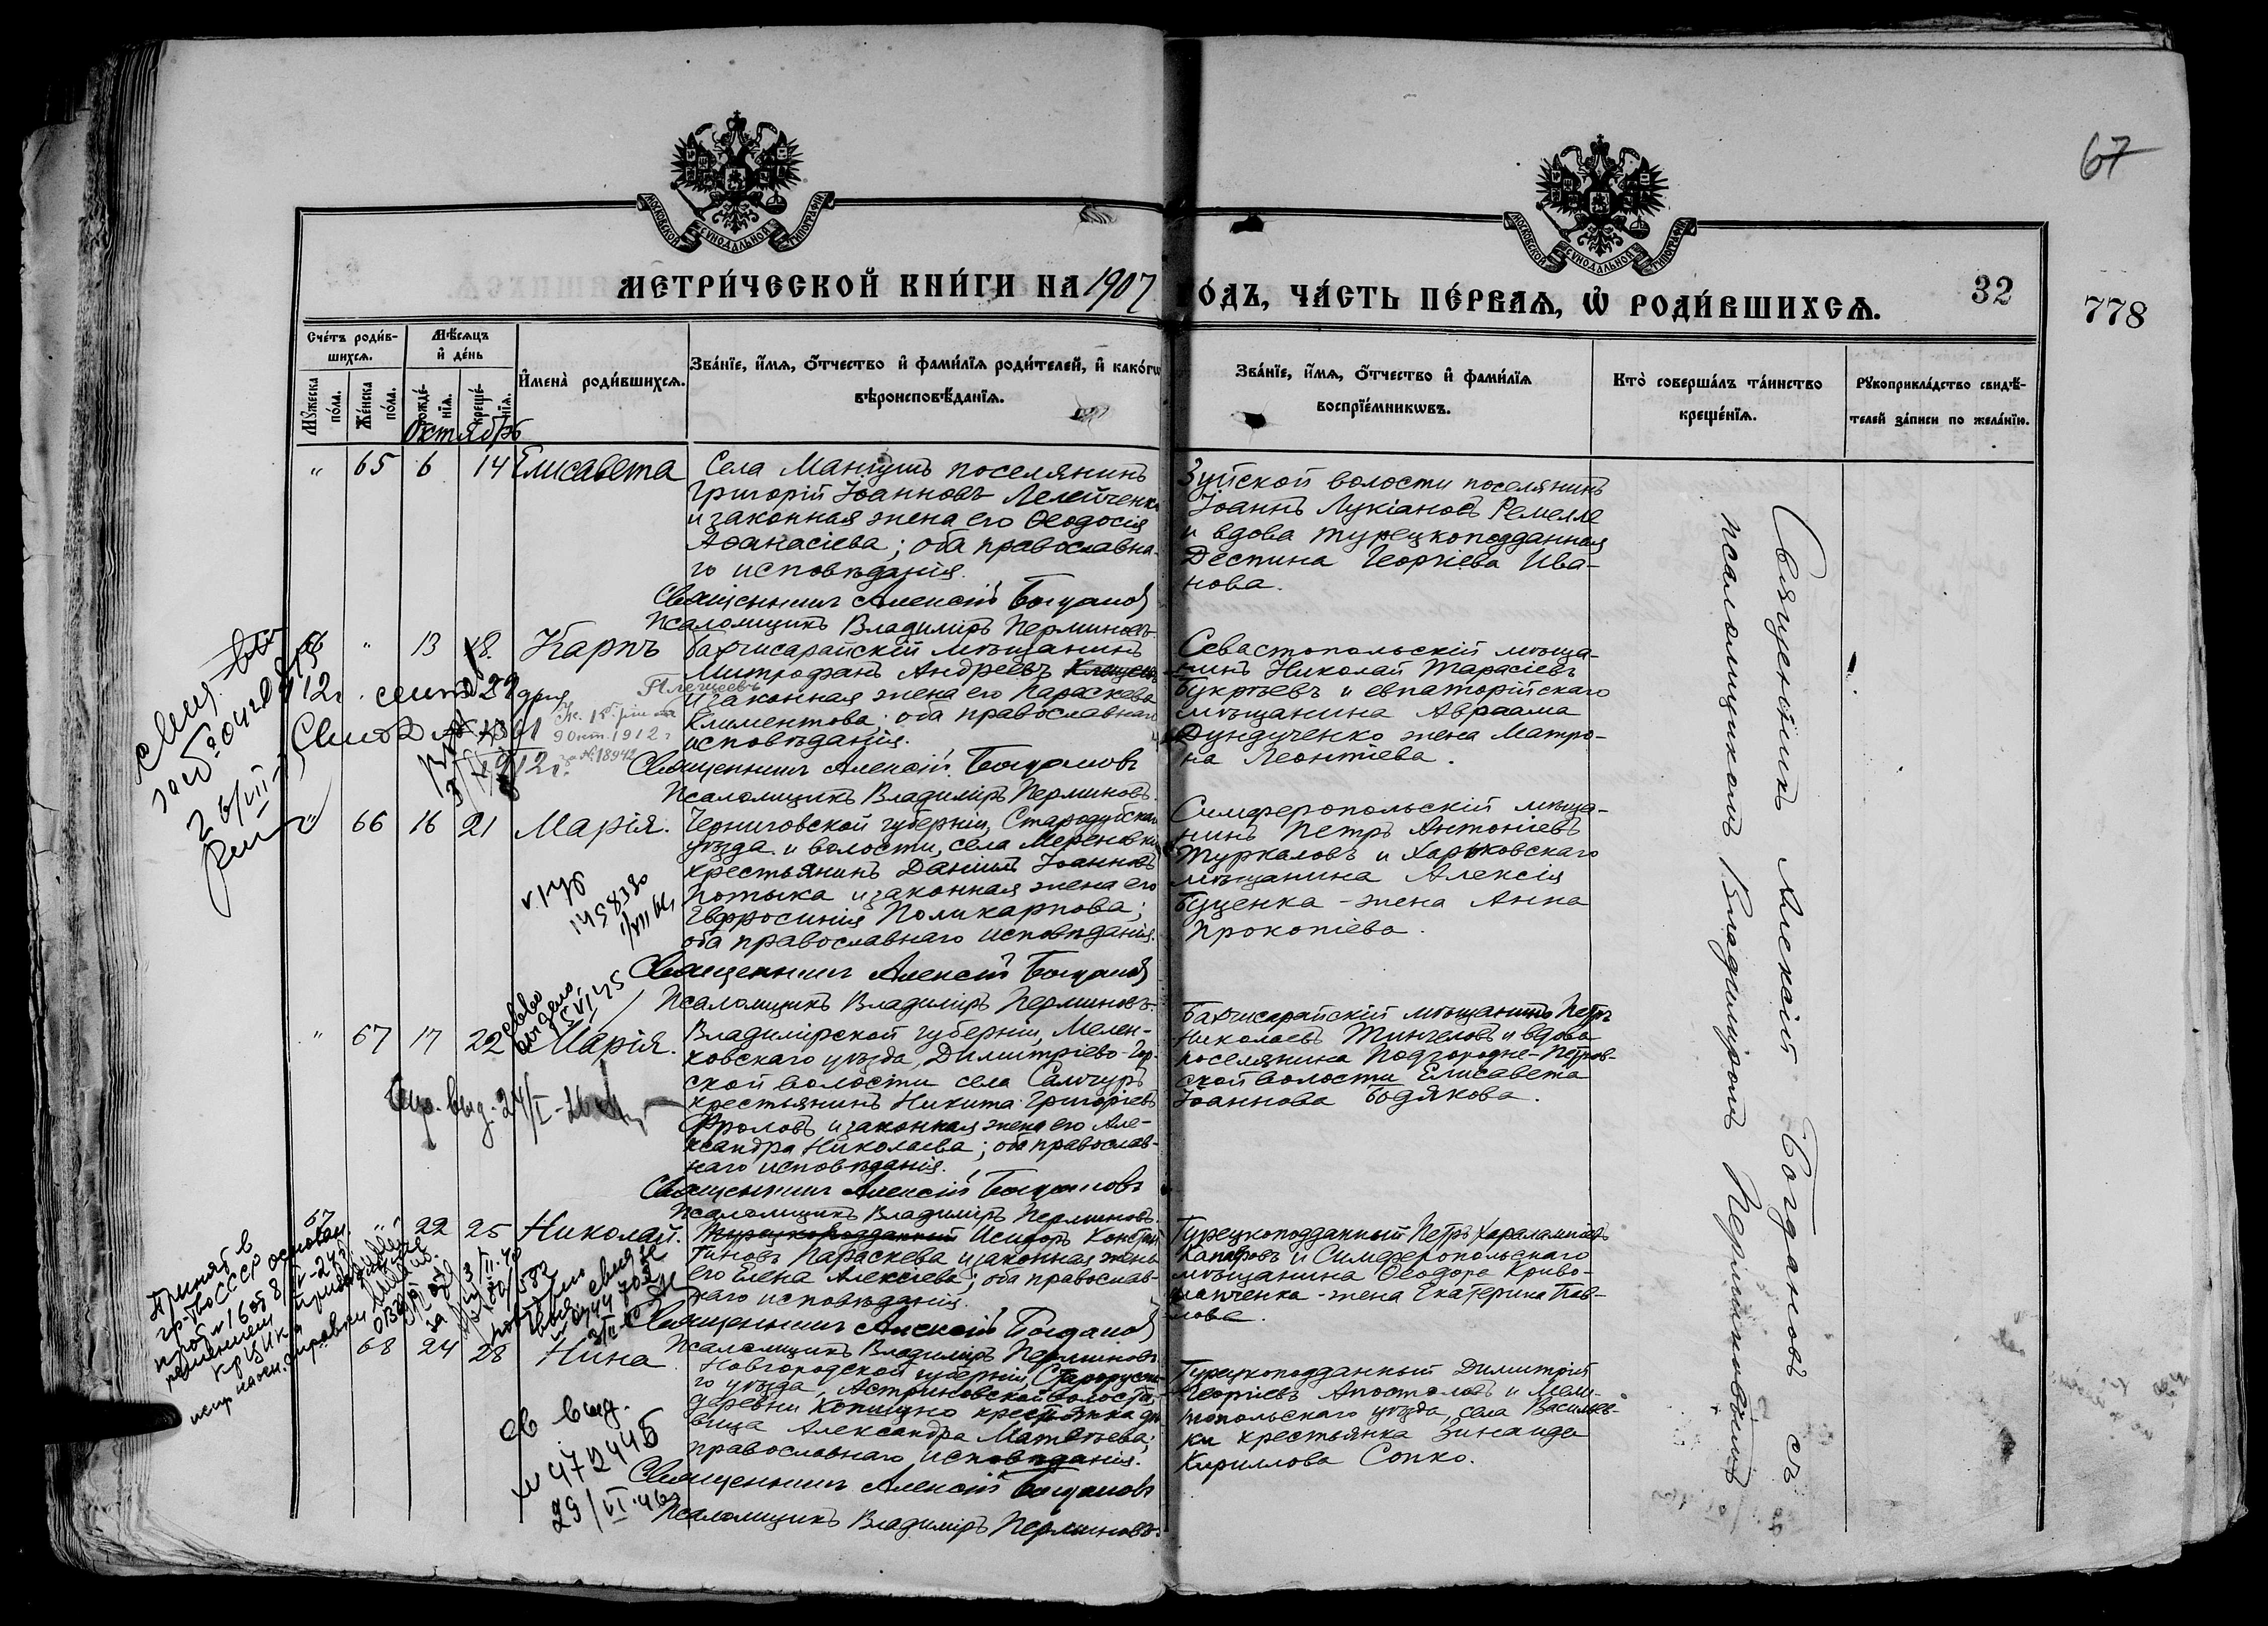 67
МОСКОВСКОЙ СѴНОДАЛЬНОЙ ТИПОГРАФІИ
МОСКОВСКОЙ СѴНОДАЛЬНОЙ ТИПОГРАФІИ
МЕТРИ́ЧЕСКОЙ КНИ́ГИ НА 1907 ГО́ДЪ, ЧА́СТЬ ПЕ́РВАѦ, Ѡ РОДИ́ВШИХСѦ.
32
778
Сче́тъ роди́в-
шихсѧ.
Мꙋ́жеска по́ла.
Же́нска по́ла.
Мѣ́сѧцъ
и҆ де́нь
рожде́-
нїѧ.
креще́-
нїѧ.
И҆мена̀ роди́вшихсѧ.
Зва́нїе, и҆́мѧ, ѻ҆́тчество и҆ фами́лїѧ роди́телей, и҆ како́гѡ
вѣроисповѣ́данїѧ.
Зва́нїе, и҆́мѧ, ѻ҆́тчество и҆ фами́лїѧ
воспрїе́мникѡвъ.
Кто̀ соверша́лъ та́инство
креще́нїѧ.
Рꙋкоприкла́дство свидѣ́-
телей за́писи по жела́нїю.
Октябрь
" 65 6 14 Елисавета
Села Мангушъ поселянинъ
Григорій Іоанновъ Лелейченко
и законная жена его Ѳеодосія
Аѳанасіева; оба православна-
го исповѣданія.
Священникъ Алексій Богданов
Псаломщикъ Владиміръ Перминовъ
Зуйской волости поселянинъ
Іоаннъ Лукіановъ Ремеле
и вдова турецкоподданная
Деспина Георгіева Ива-
нова.
66 " 13 18. Карпъ
Бахчисарайскій мѣщанинъ
Митрофанъ Андреевъ
Плещеевъ
и законная жена его Параскева
Климентова; оба православнаго
исповѣданія.
Священникъ Алексій Богдановъ
Псаломщикъ Владиміръ Перминовъ.
Севастопольскій мѣща-
нинъ Николай Тарасіевъ
Букрѣевъ и евпаторійскаго
мѣщанина Авраама
Дундученко жена Матро-
на Леонтіева.
912г. сент. 29 дня
9 окт. 1912 г
за № 18942
" 66 16 21 Марія.
Черниговской губерніи, Стародубскаго
уѣзда и волости, села Мереновки
крестьянинъ Даніилъ Іоанновъ
Потыка и законная жена его
Евфросинія Поликарпова;
оба православнаго исповѣданія.
Священникъ Алексій Богданов
Псаломщикъ Владиміръ Перминовъ.
Симферопольскій мѣща-
нинъ Петръ Антоніевъ
Туркаловъ и Харьковскаго
мѣщанина Алексія
Буценка - жена Анна
Прокопіева.
" 67 17 22 Марія.
Владимірской губерніи, Мелен-
ковскаго уѣзда, Димитріево-Гор-
ской волости села
крестьянинъ Никита Григоріевъ
Фроловъ и законная жена его Але-
ксандра Николаева; оба православ-
наго исповѣданія.
Священникъ Алексій Богдановъ
Псаломщикъ Владиміръ Перминовъ.
Бахчисарайскій мѣщанинъ Петръ
Николаевъ Тингеловъ и вдова
поселянина Подгородне-Петров-
ской волости Елисавета
Іоаннова Бодякова.
67 " 22 25 Николай.
Турецкоподданный Исидоръ Констан-
тиновъ Параскева и законная жена
его Елена Алексіева; оба православ-
наго исповѣданія.
Священникъ Алексій Богданов
Псаломщикъ Владиміръ Перминовъ
Турецкоподданный Петръ Харалампіевъ
и Симферопольскаго
мѣщанина Ѳеодора Криво-
жена Екатерина Пав-
лова.
Принят в
гр-тво СССР основан.
68 24 28 Нина
Новгородской губерніи, Старорусска-
го уѣзда, Астриловской волости,
деревни Копицно крестьянка дѣ-
вица Александра Матѳеева;
православнаго исповѣданія.
Священникъ Алексій Богдановъ
Псаломщикъ Владиміръ Перминовъ.
Турецкоподданный Димитрій
Георгіевъ Апостоловъ и Мели-
топольскаго уѣзда, села Васильев-
ки крестьянка Зинаида
Кириллова Сопко.
св выд.
29/VI-46
Священникъ Алексій Богдановъ съ
псаломщикомъ Владиміромъ Перминовымъ